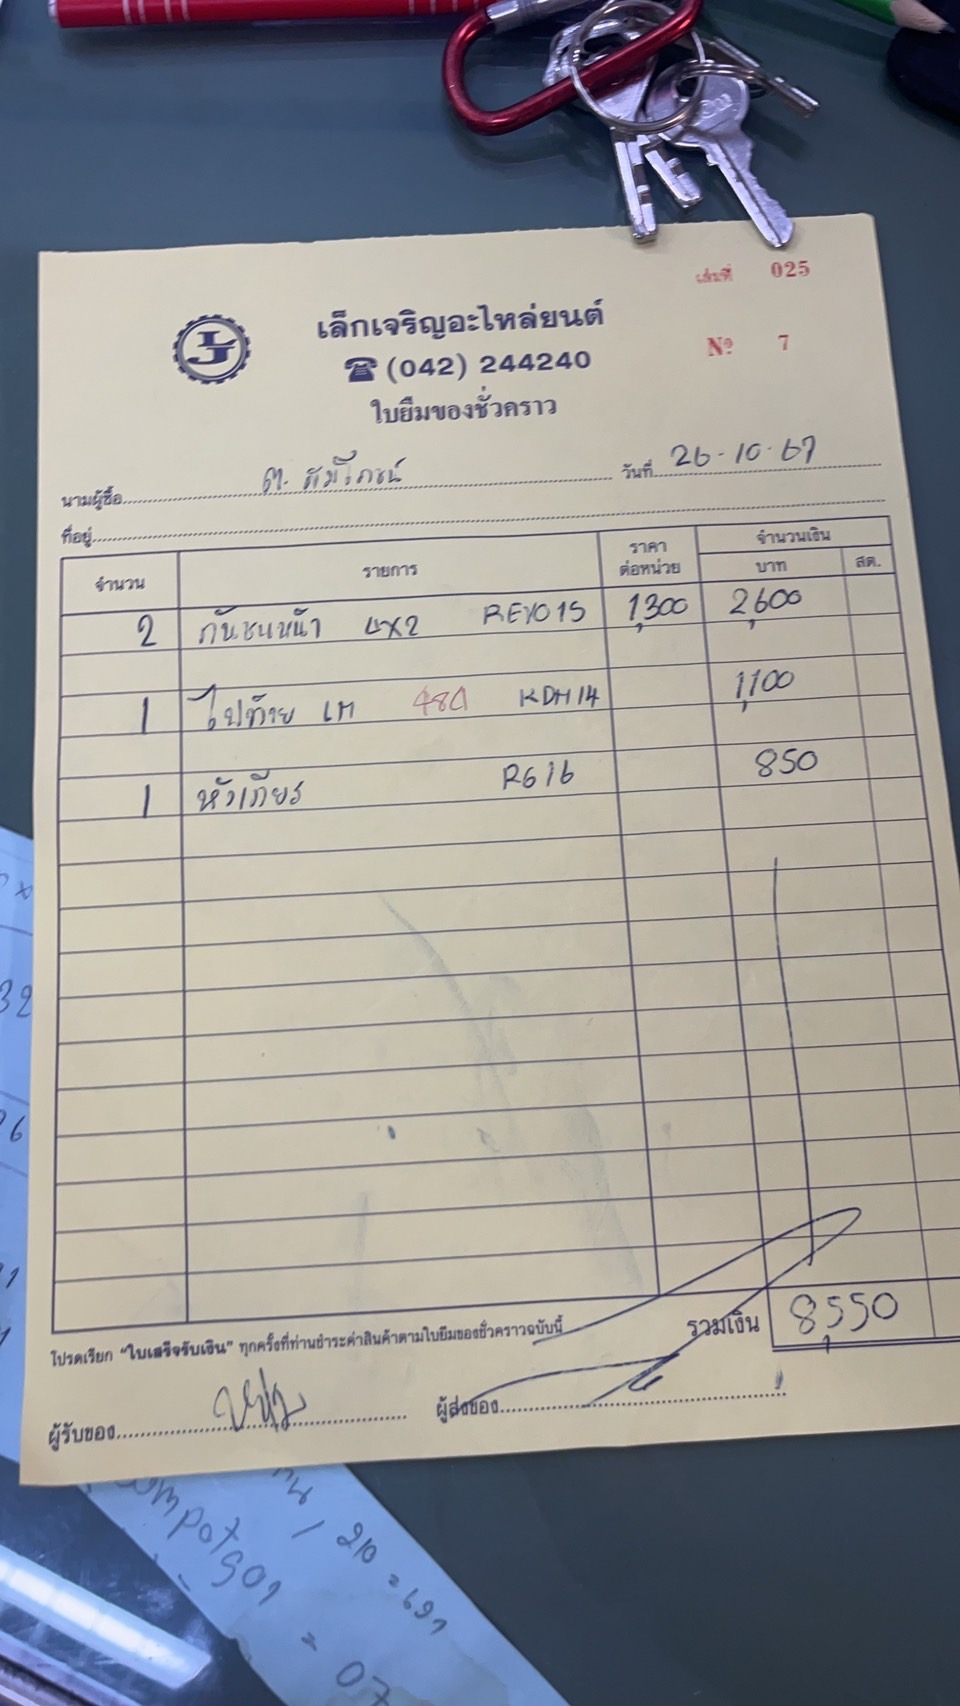 เล่มที่ 025
เล็กเจริญอะไหล่ยนต์
(042) 244240
Nº 7
ใบยืมของชั่วคราว
นามผู้ซื้อ ต. สัมโภชน์ วันที่ 26-10-67
ที่อยู่
จำนวน รายการ ราคาต่อหน่วย จำนวนเงิน
บาท สต.
2 กันชนหน้า 4x2 REVO15 1,300 2,600
1 ไฟท้าย LH 48A KDH14 1,100
1 หัวเกียร์ R616 850
รวมเงิน 8,550
โปรดเรียก "ใบเสร็จรับเงิน" ทุกครั้งที่ท่านชำระค่าสินค้าตามใบยืมของชั่วคราวฉบับนี้
ผู้รับของ ผู้ส่งของ
32
210 = 691
= 07